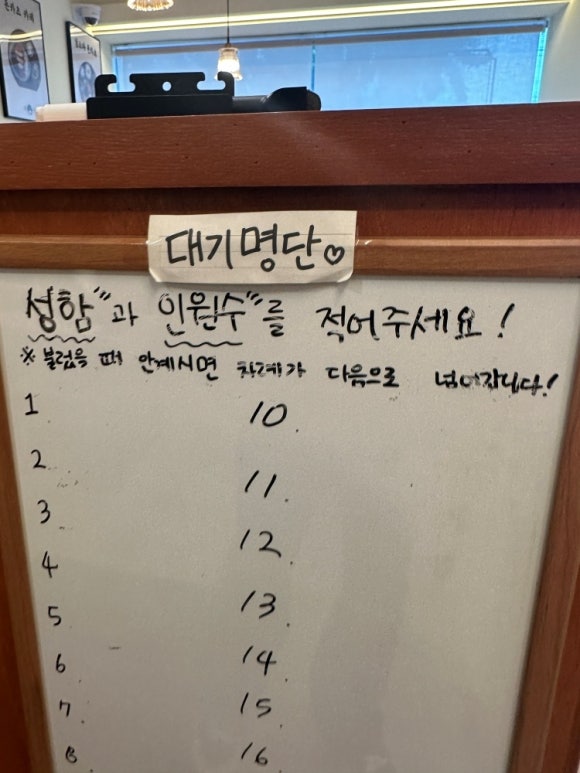 대기명단♡
성함"과 인원수"를 적어주세요!
※ 불렀을 때 안계시면 차례가 다음으로 넘어갑니다!
1.
10.
2.
11.
3.
12.
4.
13.
5.
14.
6.
15.
7.
16.
8